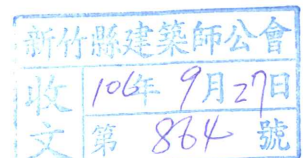 新竹縣建築師公會
收文
106年9月27日
第864號